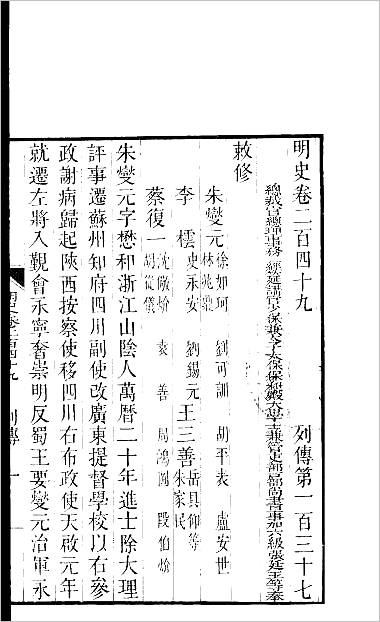 明史卷二百四十九 列傳第一百三十七
總裁官總理事務 經筵講官少保兼太子太保保和殿大學士兼管吏部戶部尚書事加六級張廷玉等奉
敕修
朱燮元 徐如珂 劉可訓 胡平表 盧安世
林兆鼎
李橒 史永安 劉錫元 王三善 岳具仰等
朱家民
蔡復一 沈儆炌 袁善 周鴻圖 段伯炌
胡從儀
朱燮元字懋和浙江山陰人萬曆二十年進士除大理
評事遷蘇州知府四川副使改廣東提督學校以右參
政謝病歸起陝西按察使移四川右布政使天啟元年
就遷左將入覲會永寧奢崇明反蜀王要燮元治軍永
明史卷二百四十九 列傳 一